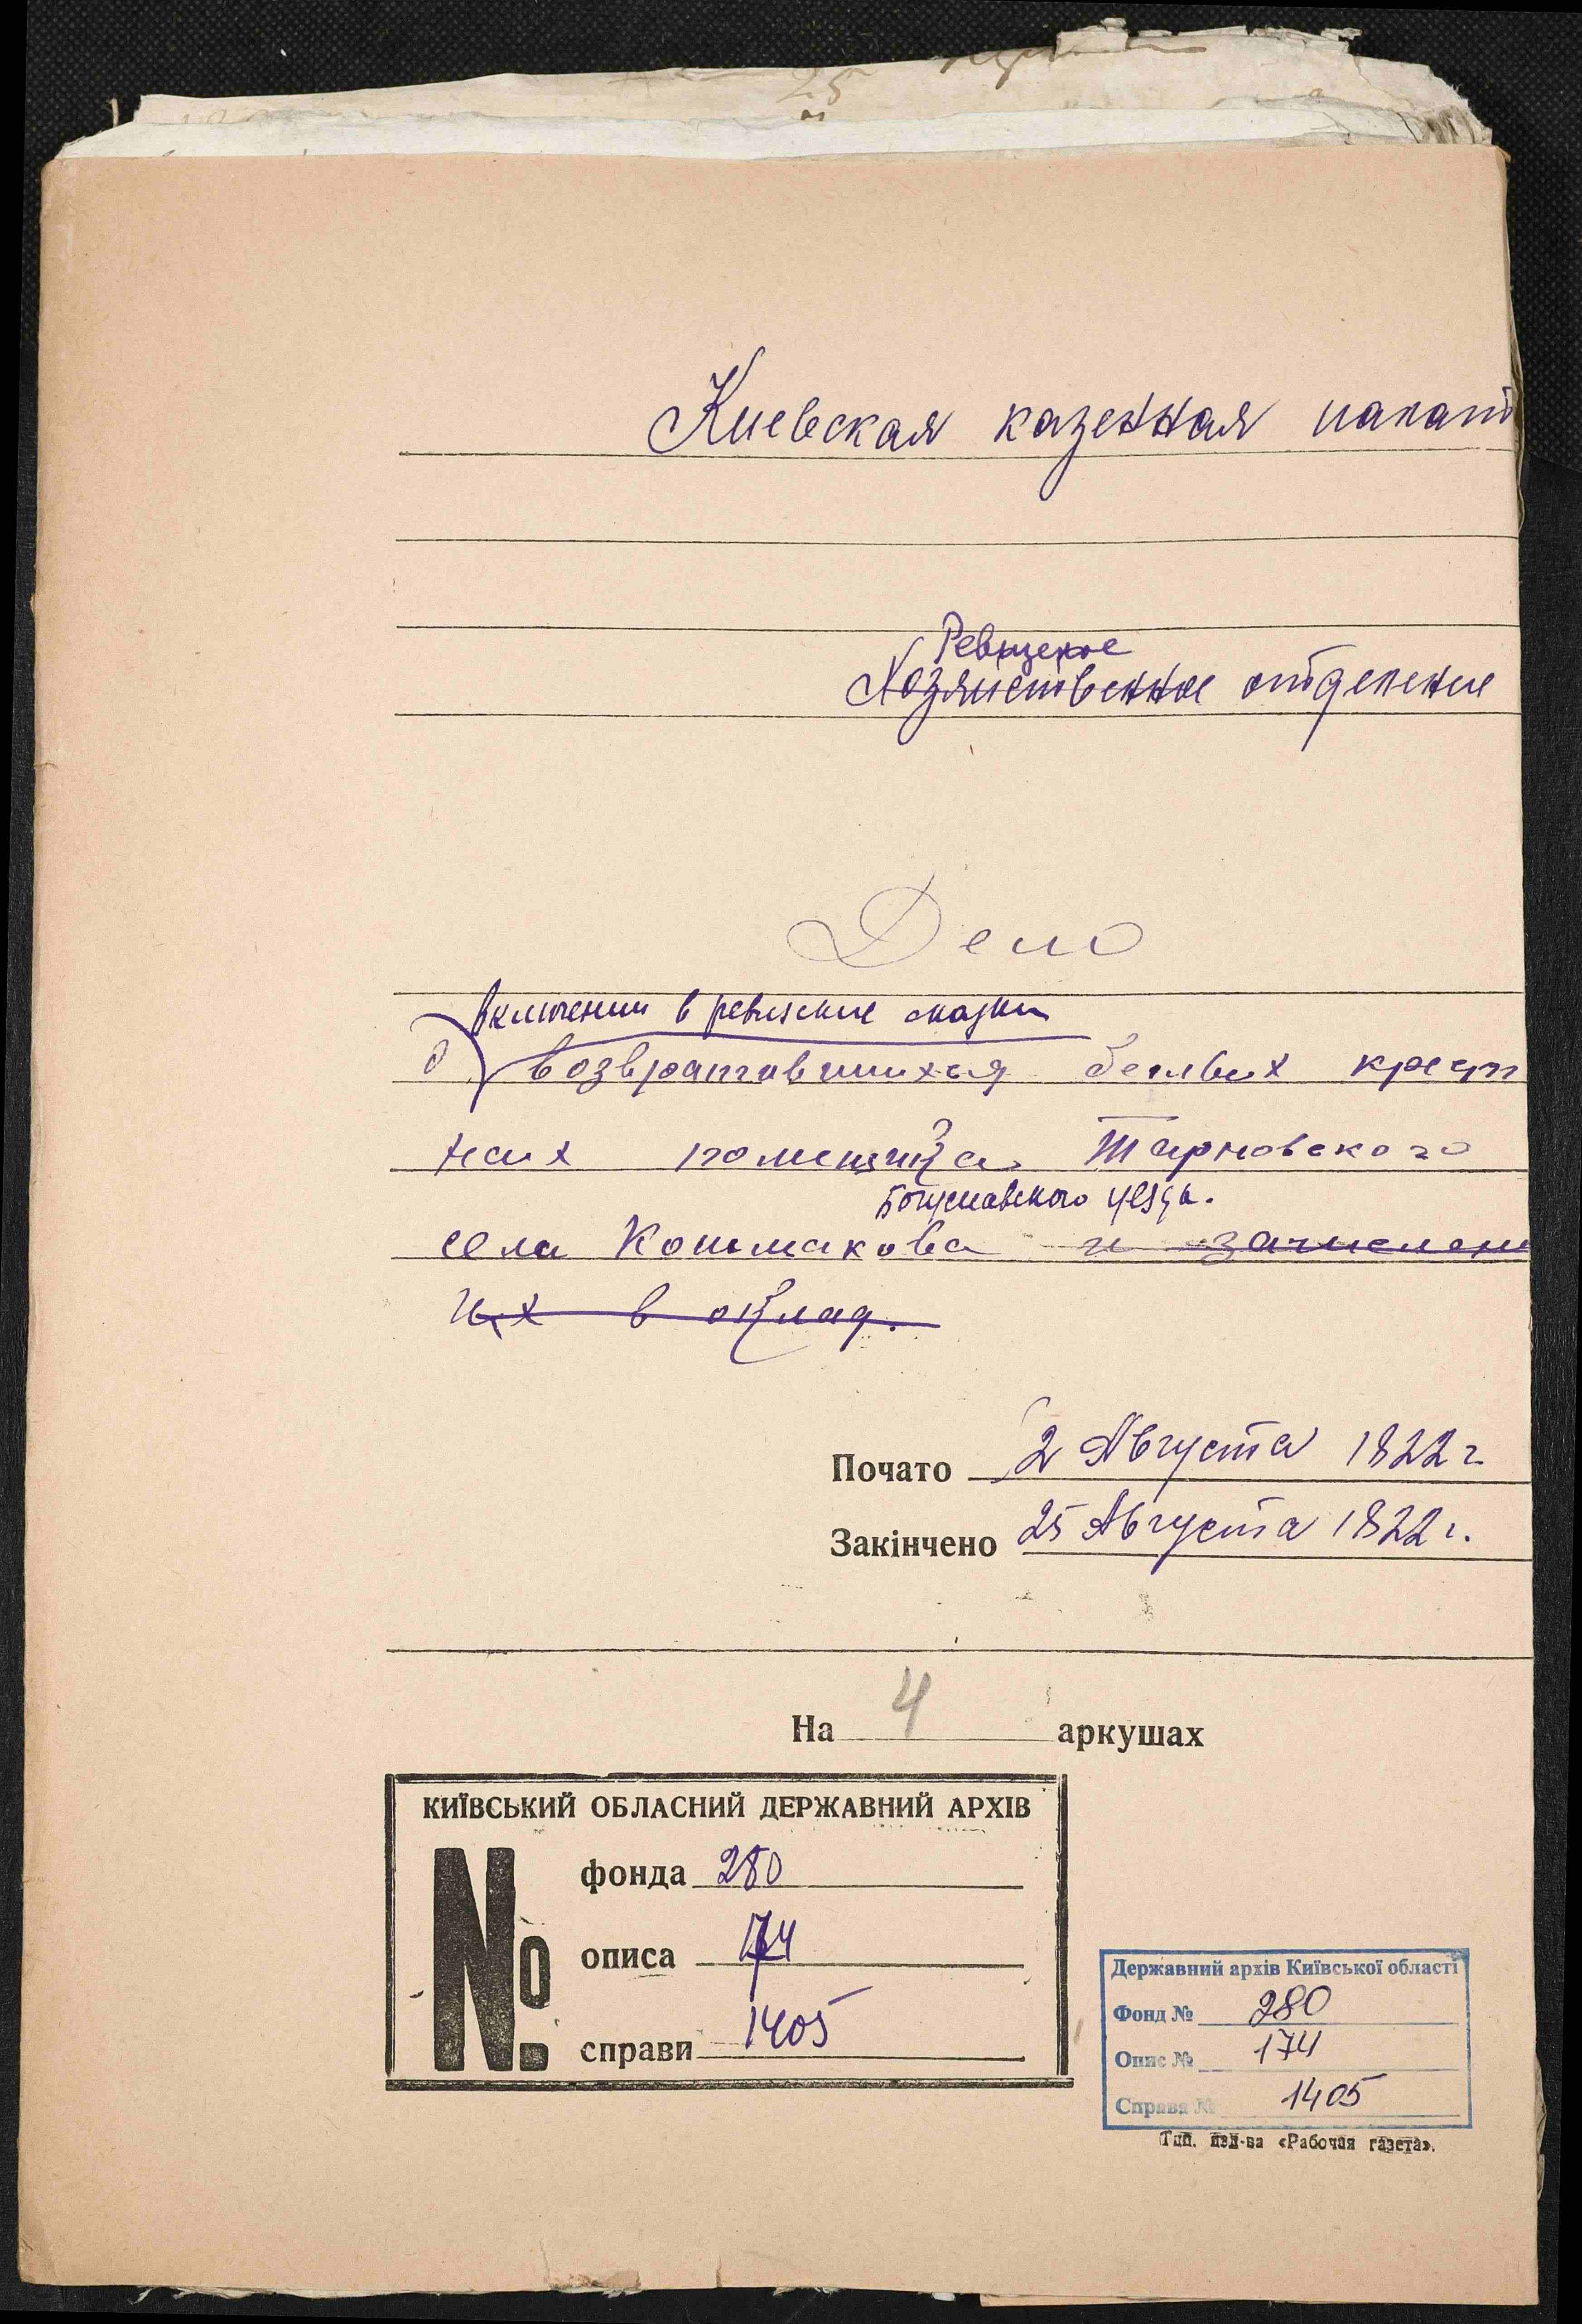 Киевская казенная палат
Ревизское
Хозяйственное отделение
Дело
включении в ревизские сказки
о возвратившихся беглых крестья
нах помещика Тарновского
Богуславского уезда.
села Кошмакова и зачислени
их в оклад.
Почато 2 Августа 1822 г
Закінчено 25 Августа 1822 г.
На 4 аркушах
КИЇВСЬКИЙ ОБЛАСНИЙ ДЕРЖАВНИЙ АРХІВ
№ фонда 280
описа 174
справи 1405
Державний архів Київської області
Фонд № 280
Опис № 174
Справа № 1405
Тип. изд-ва «Рабочая газета».